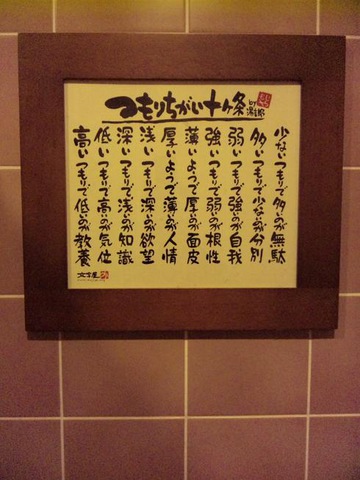 つもりちがい十ヶ条
少ないつもりで多いのが無駄
多いつもりで少ないのが分別
弱いつもりで強いのが自我
強いつもりで弱いのが根性
薄いようで厚いのが面皮
厚いようで薄いのが人情
浅いつもりで深いのが欲望
深いつもりで浅いのが知識
低いつもりで高いのが気位
高いつもりで低いのが教養
文字屋